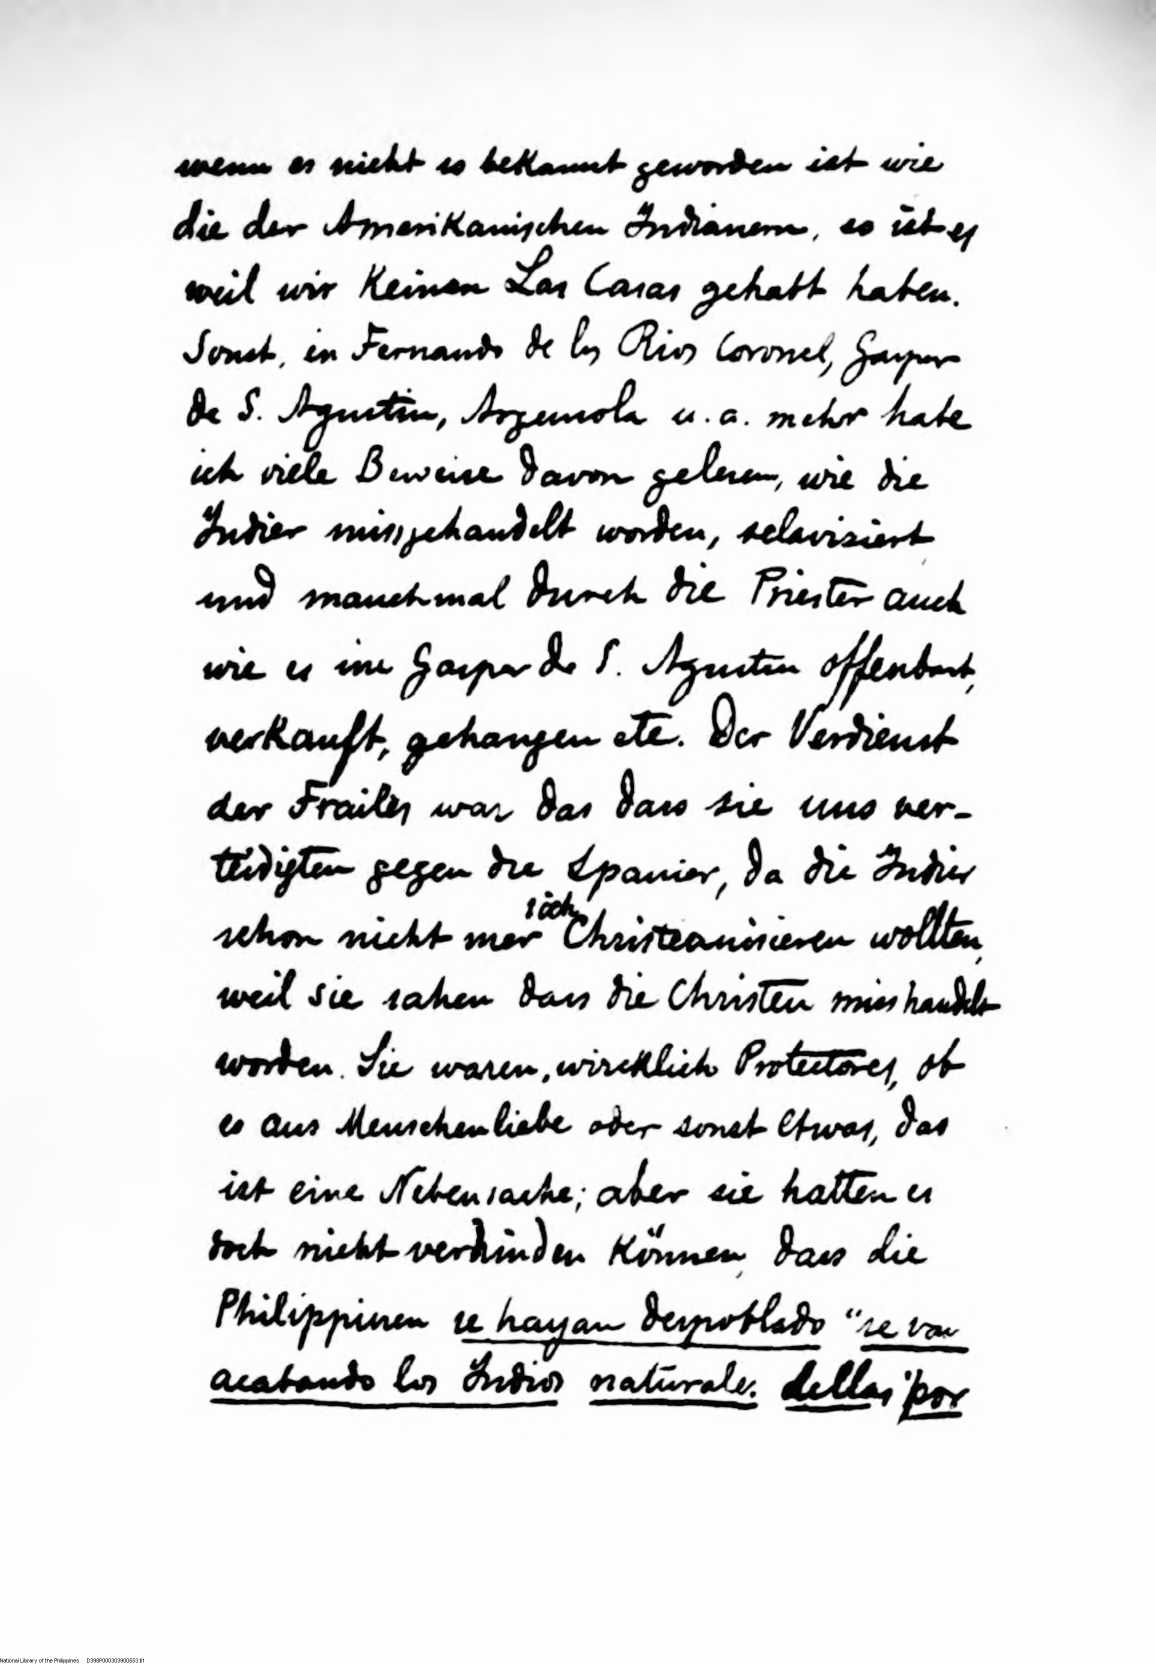 wenn es nicht so bekannt geworden ist wie
die der Amerikanischen Indianern, so ist es
weil wir keinen Las Casas gehabt haben.
Sonst, in Fernando de los Rios Coronel, Gaspar
de S. Agustin, Argensola u. a. mehr habe
ich viele Beweise davon gelesen, wie die
Indier missgehandelt worden, sclavisiert
und manchmal durch die Priester auch
wie es im Gaspar de S. Agustin offenbart,
verkauft, gehangen etc. Der Verdienst
der Frailes war das dass sie uns ver-
teidigten gegen die Spanier, da die Indier
schon nicht mer sich Christianisieren wollten,
weil sie sahen dass die Christen misshandelt
worden. Sie waren, wircklich Protectores, ob
es aus Menschenliebe oder sonst Etwas, das
ist eine Nebensache; aber sie hatten es
doch nicht verhinden können, dass die
Philippinen se hayan despoblado "se van
acabando los Indios naturales dellas" por
National Library of the Philippines